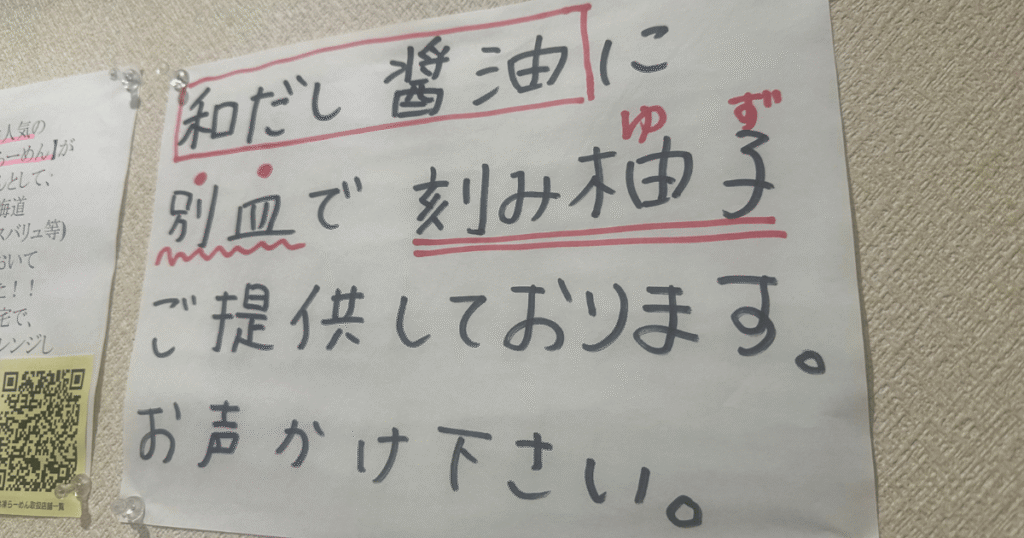 人気の
らーめん】が
として、
海道
スバリュ等)
おいて
た！！
宅で、
レンジし
和だし 醤油に
ゆ ず
別皿で 刻み柚子
ご提供しております。
お声かけ下さい。